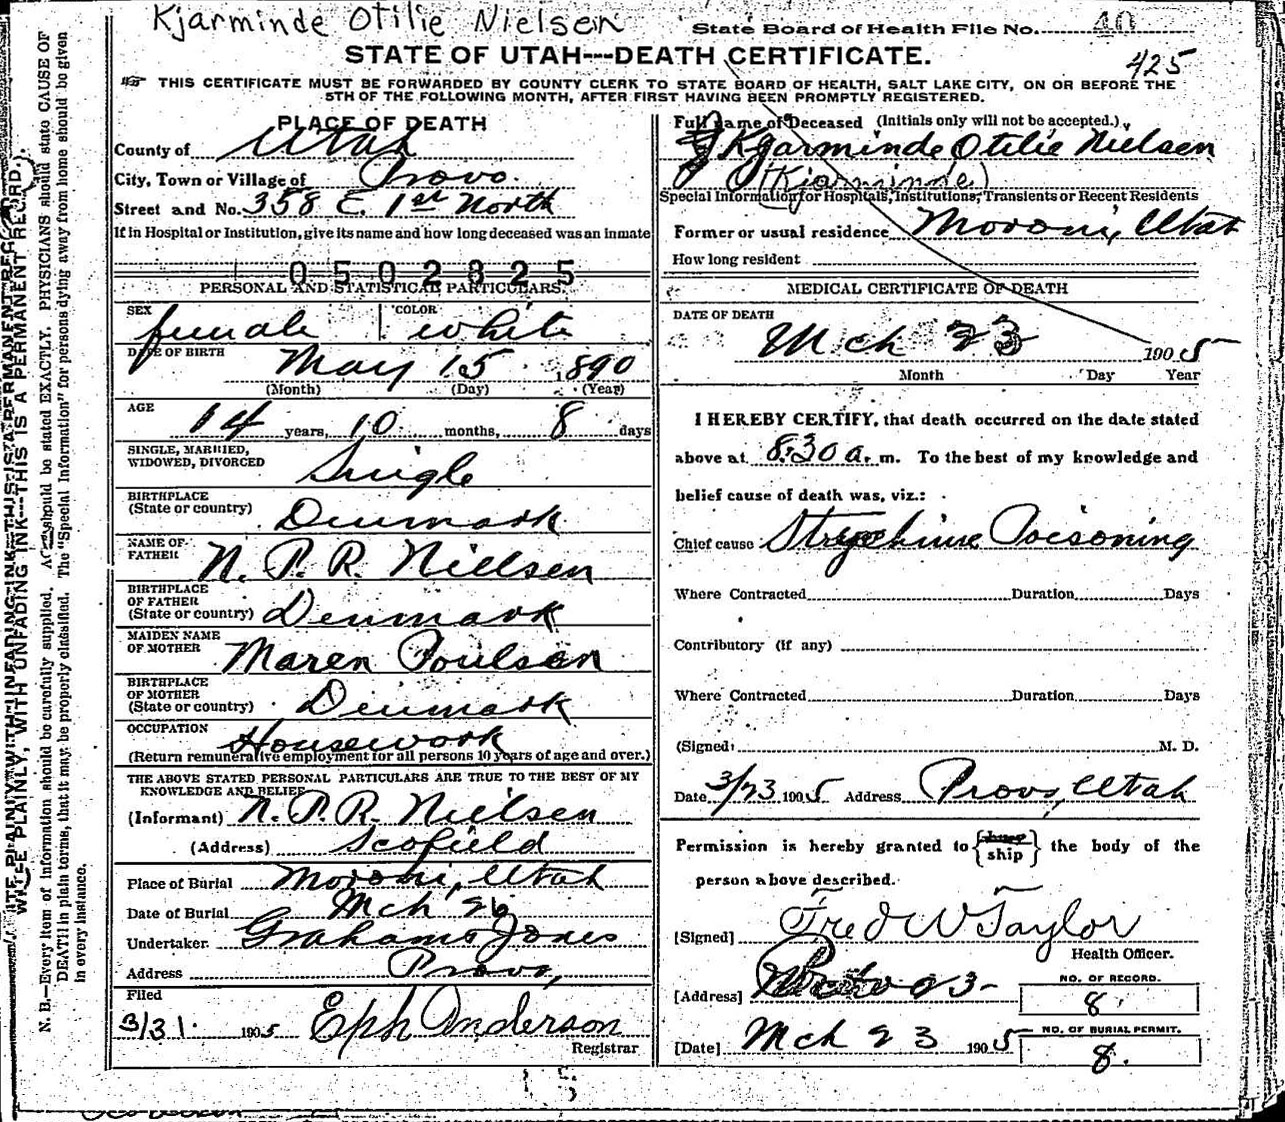 Kjarminde Otilie Nielsen
State Board of Health File No. 40
STATE OF UTAH---DEATH CERTIFICATE.
425
☞ THIS CERTIFICATE MUST BE FORWARDED BY COUNTY CLERK TO STATE BOARD OF HEALTH, SALT LAKE CITY, ON OR BEFORE THE
5TH OF THE FOLLOWING MONTH, AFTER FIRST HAVING BEEN PROMPTLY REGISTERED.
WRITE PLAINLY, WITH UNFADING INK---THIS IS A PERMANENT RECORD.
N. B.—Every item of information should be carefully supplied. Age should be stated EXACTLY. PHYSICIANS should state CAUSE OF
DEATH in plain terms, that it may be properly classified. The "Special Information" for persons dying away from home should be given
in every instance.
PLACE OF DEATH
County of Utah
City, Town or Village of Provo.
Street and No. 358 E. 1st North
If in Hospital or Institution, give its name and how long deceased was an inmate
0502825
PERSONAL AND STATISTICAL PARTICULARS.
SEX female COLOR white
DATE OF BIRTH May 15 1890
(Month) (Day) (Year)
AGE 14 years, 10 months, 8 days
SINGLE, MARRIED,
WIDOWED, DIVORCED Single
BIRTHPLACE
(State or country) Denmark
NAME OF
FATHER N. P. R. Nielsen
BIRTHPLACE
OF FATHER
(State or country) Denmark
MAIDEN NAME
OF MOTHER Maren Poulsen
BIRTHPLACE
OF MOTHER
(State or country) Denmark
OCCUPATION Housework
(Return remunerative employment for all persons 10 years of age and over.)
THE ABOVE STATED PERSONAL PARTICULARS ARE TRUE TO THE BEST OF MY
KNOWLEDGE AND BELIEF
(Informant) N. P. R. Nielsen
(Address) Scofield
Place of Burial Moroni, Utah
Date of Burial Mch 26
Undertaker Grahams Jones
Address Provo,
Filed
3/31. 1905 Eph Anderson
Registrar
Full name of Deceased (Initials only will not be accepted.)
Kjarminde Otilie Nielsen
(Kjarminne)
Special Information for Hospitals, Institutions, Transients or Recent Residents
Former or usual residence Moroni, Utah
How long resident
MEDICAL CERTIFICATE OF DEATH
DATE OF DEATH
Mch 23 1905
Month Day Year
I HEREBY CERTIFY, that death occurred on the date stated
above at 8:30 a. m. To the best of my knowledge and
belief cause of death was, viz.:
Chief cause Strychnine Poisoning
Where Contracted Duration Days
Contributory (if any)
Where Contracted Duration Days
(Signed) M. D.
Date 3/23 1905 Address Provo, Utah
Permission is hereby granted to {bury ship} the body of the
person above described.
[Signed] Fred W Taylor
Health Officer.
[Address] Provo
NO. OF RECORD.
8
[Date] Mch 23 1905
NO. OF BURIAL PERMIT.
8.